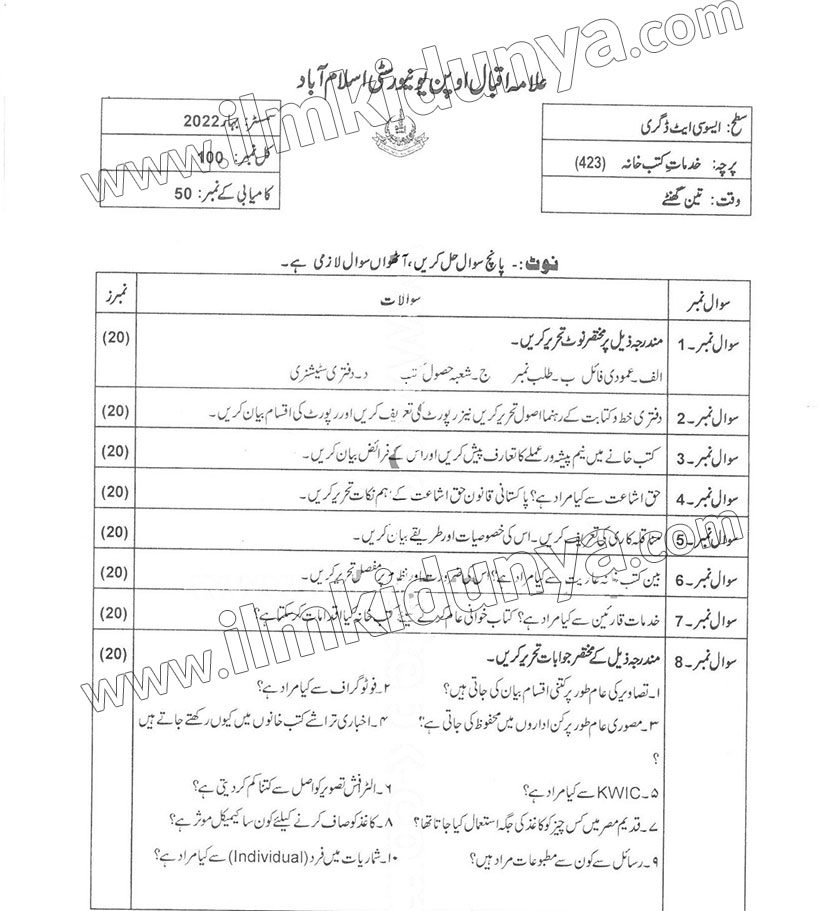 علامہ اقبال اوپن یونیورسٹی اسلام آباد
سطح: ایسوسی ایٹ ڈگری
پرچہ: خدماتِ کتب خانہ (423)
وقت: تین گھنٹے
سمسٹر: بہار 2022
کل نمبر: 100
کامیابی کے نمبر: 50
www.ilmkidunya.com
نوٹ:- پانچ سوال حل کریں، آٹھواں سوال لازمی ہے۔
سوال نمبر سوالات نمبرز
سوال نمبر۔1 مندرجہ ذیل پر مختصر نوٹ تحریر کریں۔ (20)
الف۔عمودی فائل ب۔طلب نمبر ج۔شعبہ حصول کتب د۔دفتری سٹیشنری
سوال نمبر۔2 دفتری خط و کتابت کے رہنما اصول تحریر کریں نیز رپورٹ کی تعریف کریں اور رپورٹ کی اقسام بیان کریں۔ (20)
سوال نمبر۔3 کتب خانے میں نیم پیشہ ور عملے کا تعارف پیش کریں اور اس کے فرائض بیان کریں۔ (20)
سوال نمبر۔4 حق اشاعت سے کیا مراد ہے؟ پاکستانی قانون حق اشاعت کے اہم نکات تحریر کریں۔ (20)
سوال نمبر۔5 کی تعریف کریں۔ اس کی خصوصیات اور طریقے بیان کریں۔ (20)
سوال نمبر۔6 بین کتب عاریت سے کیا مراد ہے؟ اس کی ضرورت اور پر مفصل تحریر کریں۔ (20)
سوال نمبر۔7 خدمات قارئین سے کیا مراد ہے؟ کتاب خوانی عام کرنے کیلئے کتب خانہ کیا اقدامات کر سکتا ہے؟ (20)
سوال نمبر۔8 مندرجہ ذیل کے مختصر جوابات تحریر کریں۔ (20)
۱۔تصاویر کی عام طور پر کتنی اقسام بیان کی جاتی ہیں؟ ۲۔فوٹو گراف سے کیا مراد ہے؟
۳۔مصوری عام طور پر کن اداروں میں محفوظ کی جاتی ہے؟ ۴۔اخباری تراشے کتب خانوں میں کیوں رکھے جاتے ہیں
؟
۵۔KWIC سے کیا مراد ہے؟ ۶۔الٹرافش تصویر کو اصل سے کتنا کم کر دیتی ہے؟
۷۔قدیم مصر میں کس چیز کو کاغذ کی جگہ استعمال کیا جاتا تھا؟ ۸۔کاغذ کو صاف کرنے کیلئے کون سا کیمیکل موثر ہے؟
۹۔رسائل سے کون سے مطبوعات مراد ہیں؟ ۱۰۔شماریات میں فرد (Individual) سے کیا مراد ہے؟
www.ilmkidunya.com